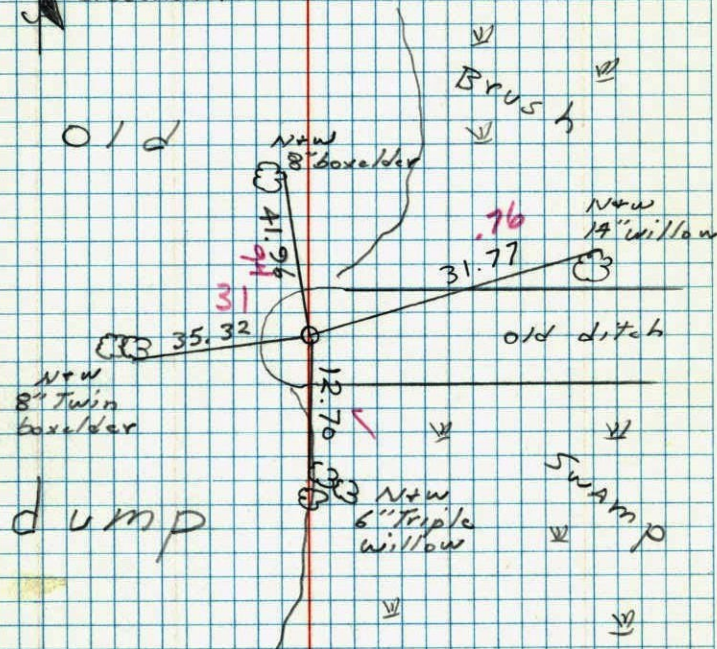 Brush
Old
N+W
8" boxelder
41.96
94
N+W
14" willow
.76
31.77
31
35.32
old ditch
N+W
8" Twin
boxelder
12.70
Swamp
N+W
6" Triple
willow
dump